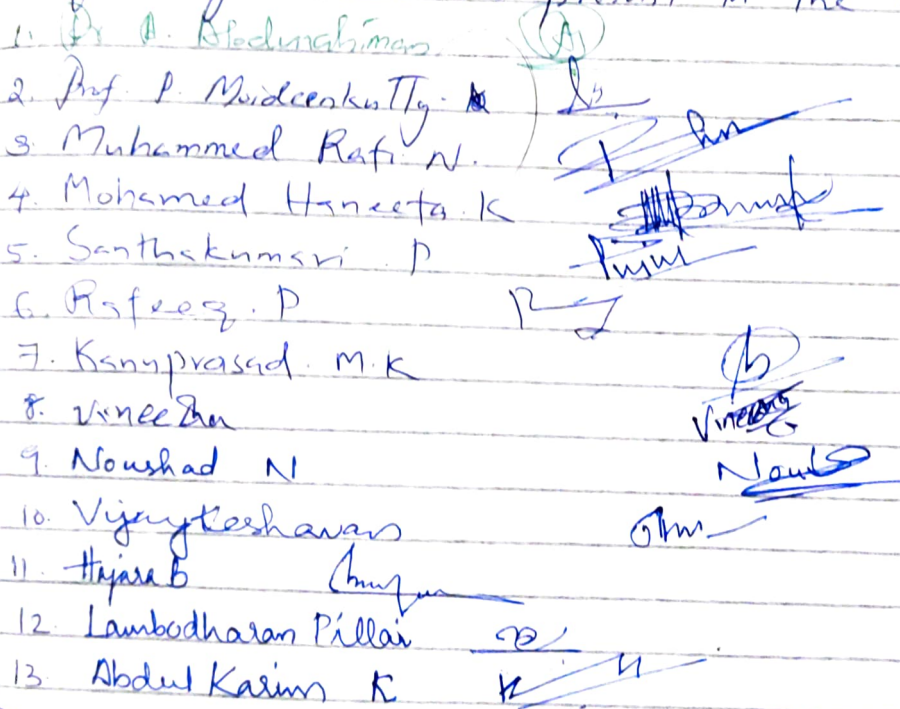 in the
1. Dr A. Abdurahiman
2. Prof. P. Moideenkutty.
3. Muhammed Rafi. N.
4. Mohamed Haneefa. K
5. Santhakumari. P
6. Rafeeq. P
7. Kanuprasad. M.K
8. Vineetha
9. Noushad N
10. Vijaykeshavan
11. Hajara B
12. Lambodharan Pillai
13 Abdul Karim K